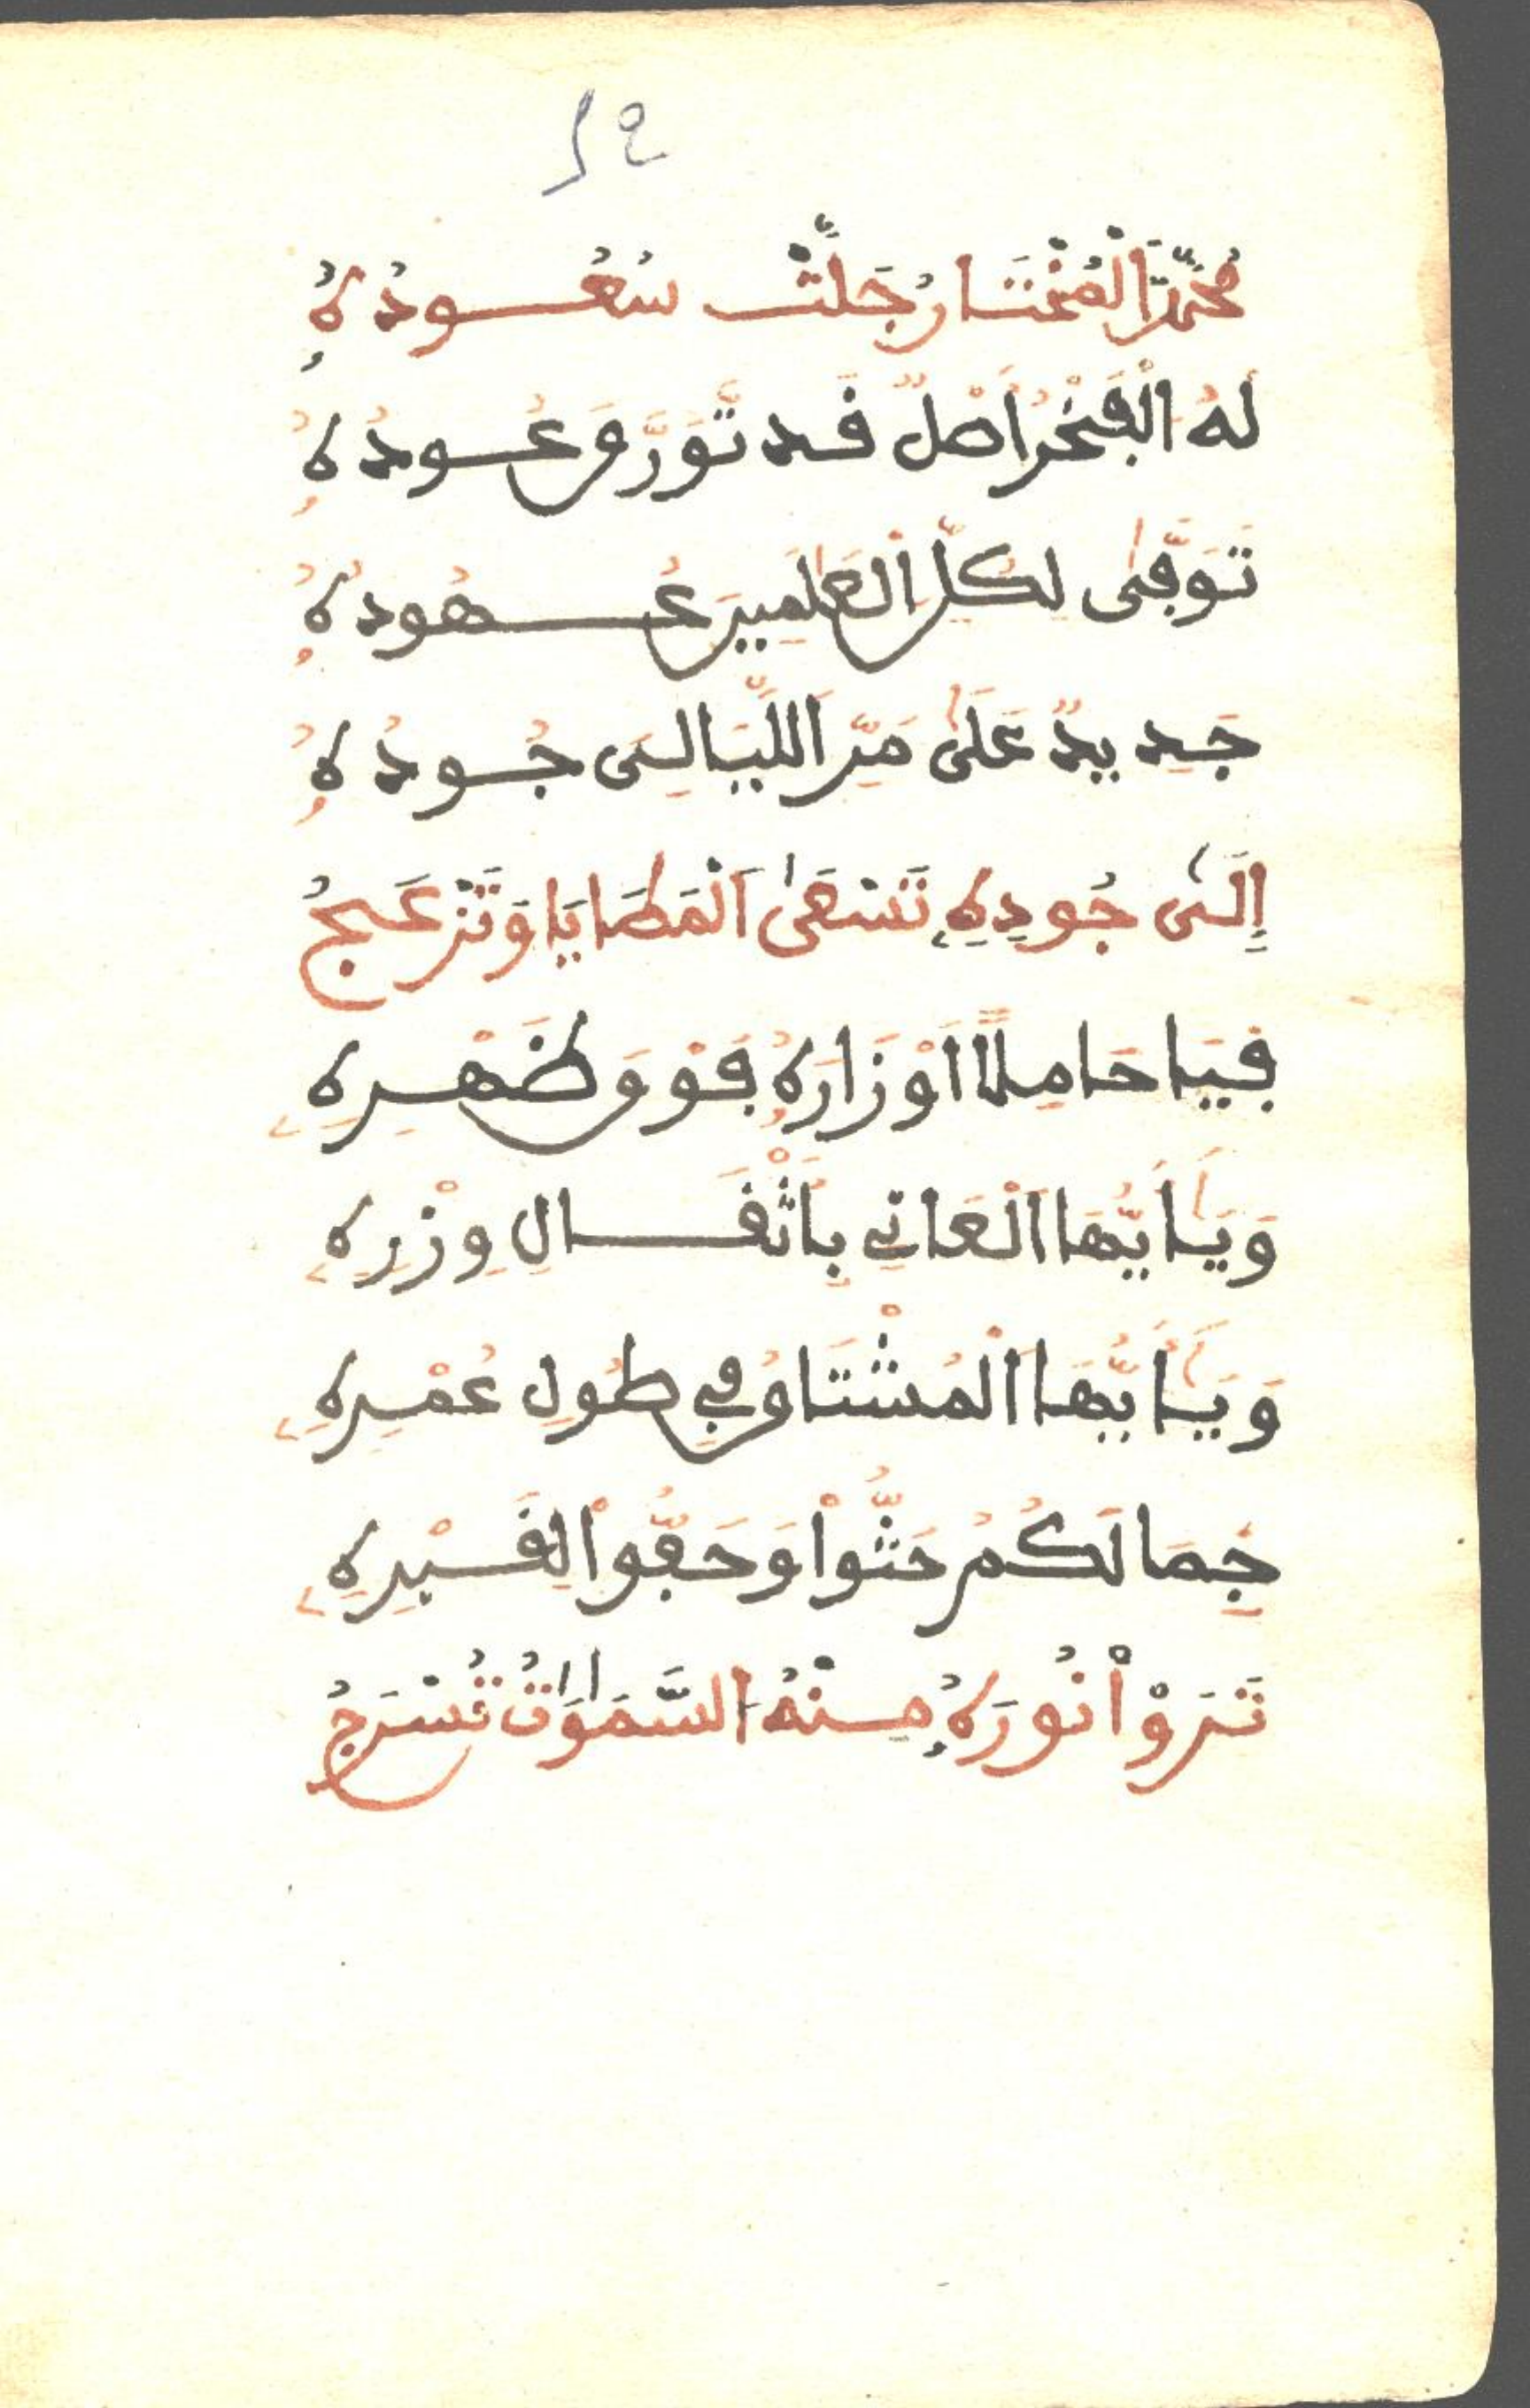 ٤٢
مُحَمَّدٌ الْمُخْتَارُ جَلَّتْ سُعُودُهُ
لَهُ الْفَخْرُ أَصْلٌ قَد تَّوَرَّقَ عُودُهُ
تَوَفَّىٰ لِكُلِّ الْعَٰلَمِينَ عُهُودُهُ
جَدِيدٌ عَلَىٰ مَرِّ اللَّيَالِى جُودُهُ
إِلَىٰ جُودِهِ تَسْعَى الْمَطَايَا وَتَنْزَعِجُ
فَيَا حَامِلًا أَوْزَارَهُ فَوْقَ ظَهْرِهِ
وَيَا أَيُّهَا الْعَانِي بِأَثْقَالِ وِزْرِهِ
وَيَا أَيُّهَا الْمُشْتَاقُ فِي طُولِ عُمْرِهِ
جِمَالَكُمْ حُثُّواْ وَحَفُّواْ لِقَبْرِهِ
تَرَوْاْ نُورَهُ مِنْهُ السَّمَٰوَٰتُ تُسْرَجُ